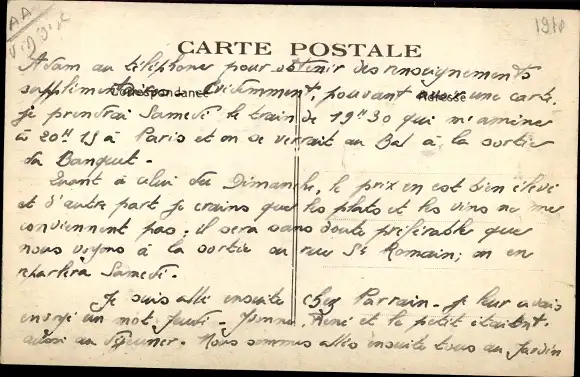 AA
1910
CARTE POSTALE
Adam au téléphone pour obtenir des renseignements
supplémentaires. Evidemment, pouvant avoir une carte,
Correspondance
Adresse
je prendrai Samedi le train de 19h30 qui m'amène
à 20h 15 à Paris et on se verrait au Bal à la sortie
du Banquet -
Quant à celui du Dimanche, le prix en est bien élevé
et d'autre part je crains que les plats et les vins ne me
conviennent pas; il sera sans doute préférable que
nous voyons à la sortie ou rue St Romain; on en
reparlera Samedi.
Je suis allé ensuite chez Parrain - je leur avais
envoyé un mot Jeudi - Yvonne, René et le petit étaient
aussi au déjeuner. Nous sommes allés ensuite tous au Jardin